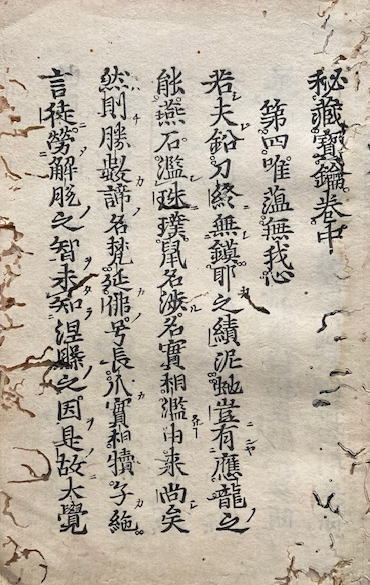 秘藏寶鑰卷中
第四唯蘊無我心
若夫鉛刀終無鏌耶之績泥虵豈有應龍之
能燕石濫珠璞鼠名渉名實相濫由来尚矣
然則勝數諦名梵延佛号長爪實相犢子絶
言徒勞解脱之智未知涅槃之因是故大覺